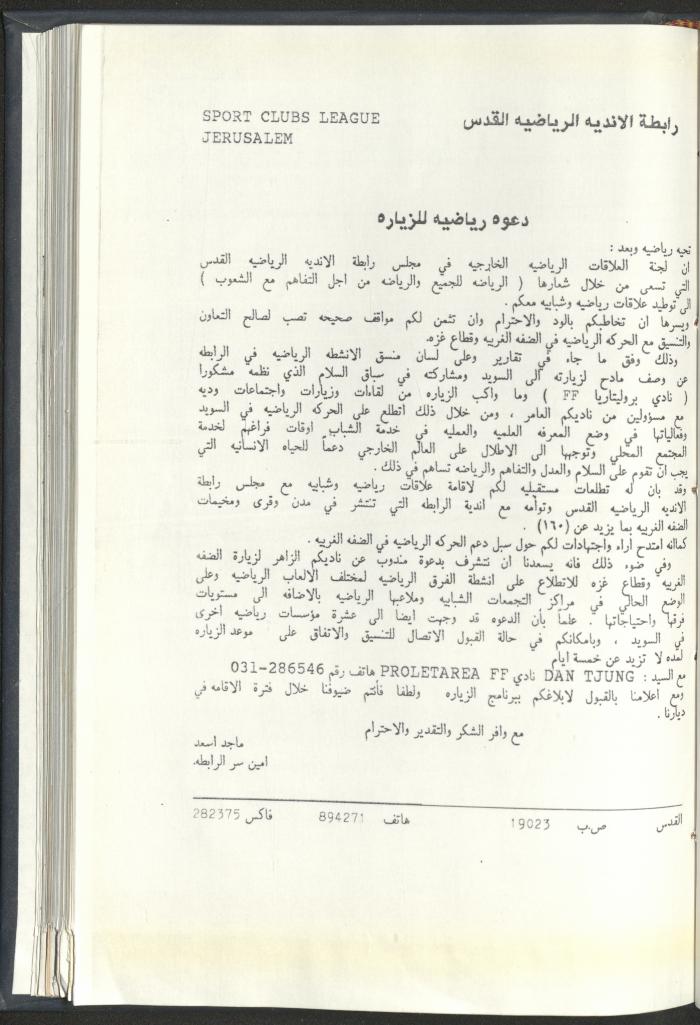 SPORT CLUBS LEAGUE
JERUSALEM
رابطة الانديه الرياضيه القدس
دعوه رياضيه للزياره
تحيه رياضيه وبعد :
ان لجنة العلاقات الرياضيه الخارجيه في مجلس رابطة الانديه الرياضيه القدس
التي تسعى من خلال شعارها ( الرياضه للجميع والرياضه من اجل التفاهم مع الشعوب )
الى توطيد علاقات رياضيه وشبابيه معكم .
ويسرها ان تخاطبكم بالود والاحترام وان تثمن لكم مواقف صحيحه تصب لصالح التعاون
والتنسيق مع الحركه الرياضيه في الضفه الغربيه وقطاع غزه.
وذلك وفق ما جاء في تقارير وعلى لسان منسق الانشطه الرياضيه في الرابطه
عن وصف مادح لزيارته الى السويد ومشاركته في سباق السلام الذي نظمه مشكورا
( نادي بروليتاريا FF ) وما واكب الزياره من لقاءات وزيارات واجتماعات وديه
مع مسؤولين من ناديكم العامر ، ومن خلال ذلك اتطلع على الحركه الرياضيه في السويد
وفعالياتها في وضع المعرفه العلميه والعمليه في خدمة الشباب اوقات فراغهم لخدمة
المجتمع المحلي وتوجهها الى الاطلال على العالم الخارجي دعماً للحياه الانسانيه التي
يجب ان تقوم على السلام والعدل والتفاهم والرياضه تساهم في ذلك .
وقد بان له تطلعات مستقبليه لكم لاقامة علاقات رياضيه وشبابيه مع مجلس رابطة
الانديه الرياضيه القدس وتوأمه مع اندية الرابطه التي تنتشر في مدن وقرى ومخيمات
الضفه الغربيه بما يزيد عن (١٦٠) .
كماانه امتدح اراء واجتهادات لكم حول سبل دعم الحركه الرياضيه في الضفه الغربيه .
وفي ضوء ذلك فانه يسعدنا ان نتشرف بدعوة مندوب عن ناديكم الزاهر لزيارة الضفه
الغربيه وقطاع غزه للاتطلاع على انشطة الفرق الرياضيه لمختلف الالعاب الرياضيه وعلى
الوضع الحالي في مراكز التجمعات الشبابيه وملاعبها الرياضيه بالاضافه الى مستويات
فرقها واحتياجاتها . علماً بأن الدعوه قد وجهت ايضا الى عشرة مؤسسات رياضيه اخرى
في السويد ، وبامكانكم في حالة القبول الاتصال للتنسيق والاتفاق على موعد الزياره
لمده لا تزيد عن خمسة ايام
مع السيد : DAN TJUNG نادي PROLETAREA FF هاتف رقم 031-286546
ومع اعلامنا بالقبول لابلاغكم ببرنامج الزياره ولطفا فأنتم ضيوفنا خلال فترة الاقامه في
ديارنا .
مع وافر الشكر والتقدير والاحترام
ماجد اسعد
امين سر الرابطه.
القدس ص.ب 19023 هاتف 894271 فاكس 282375